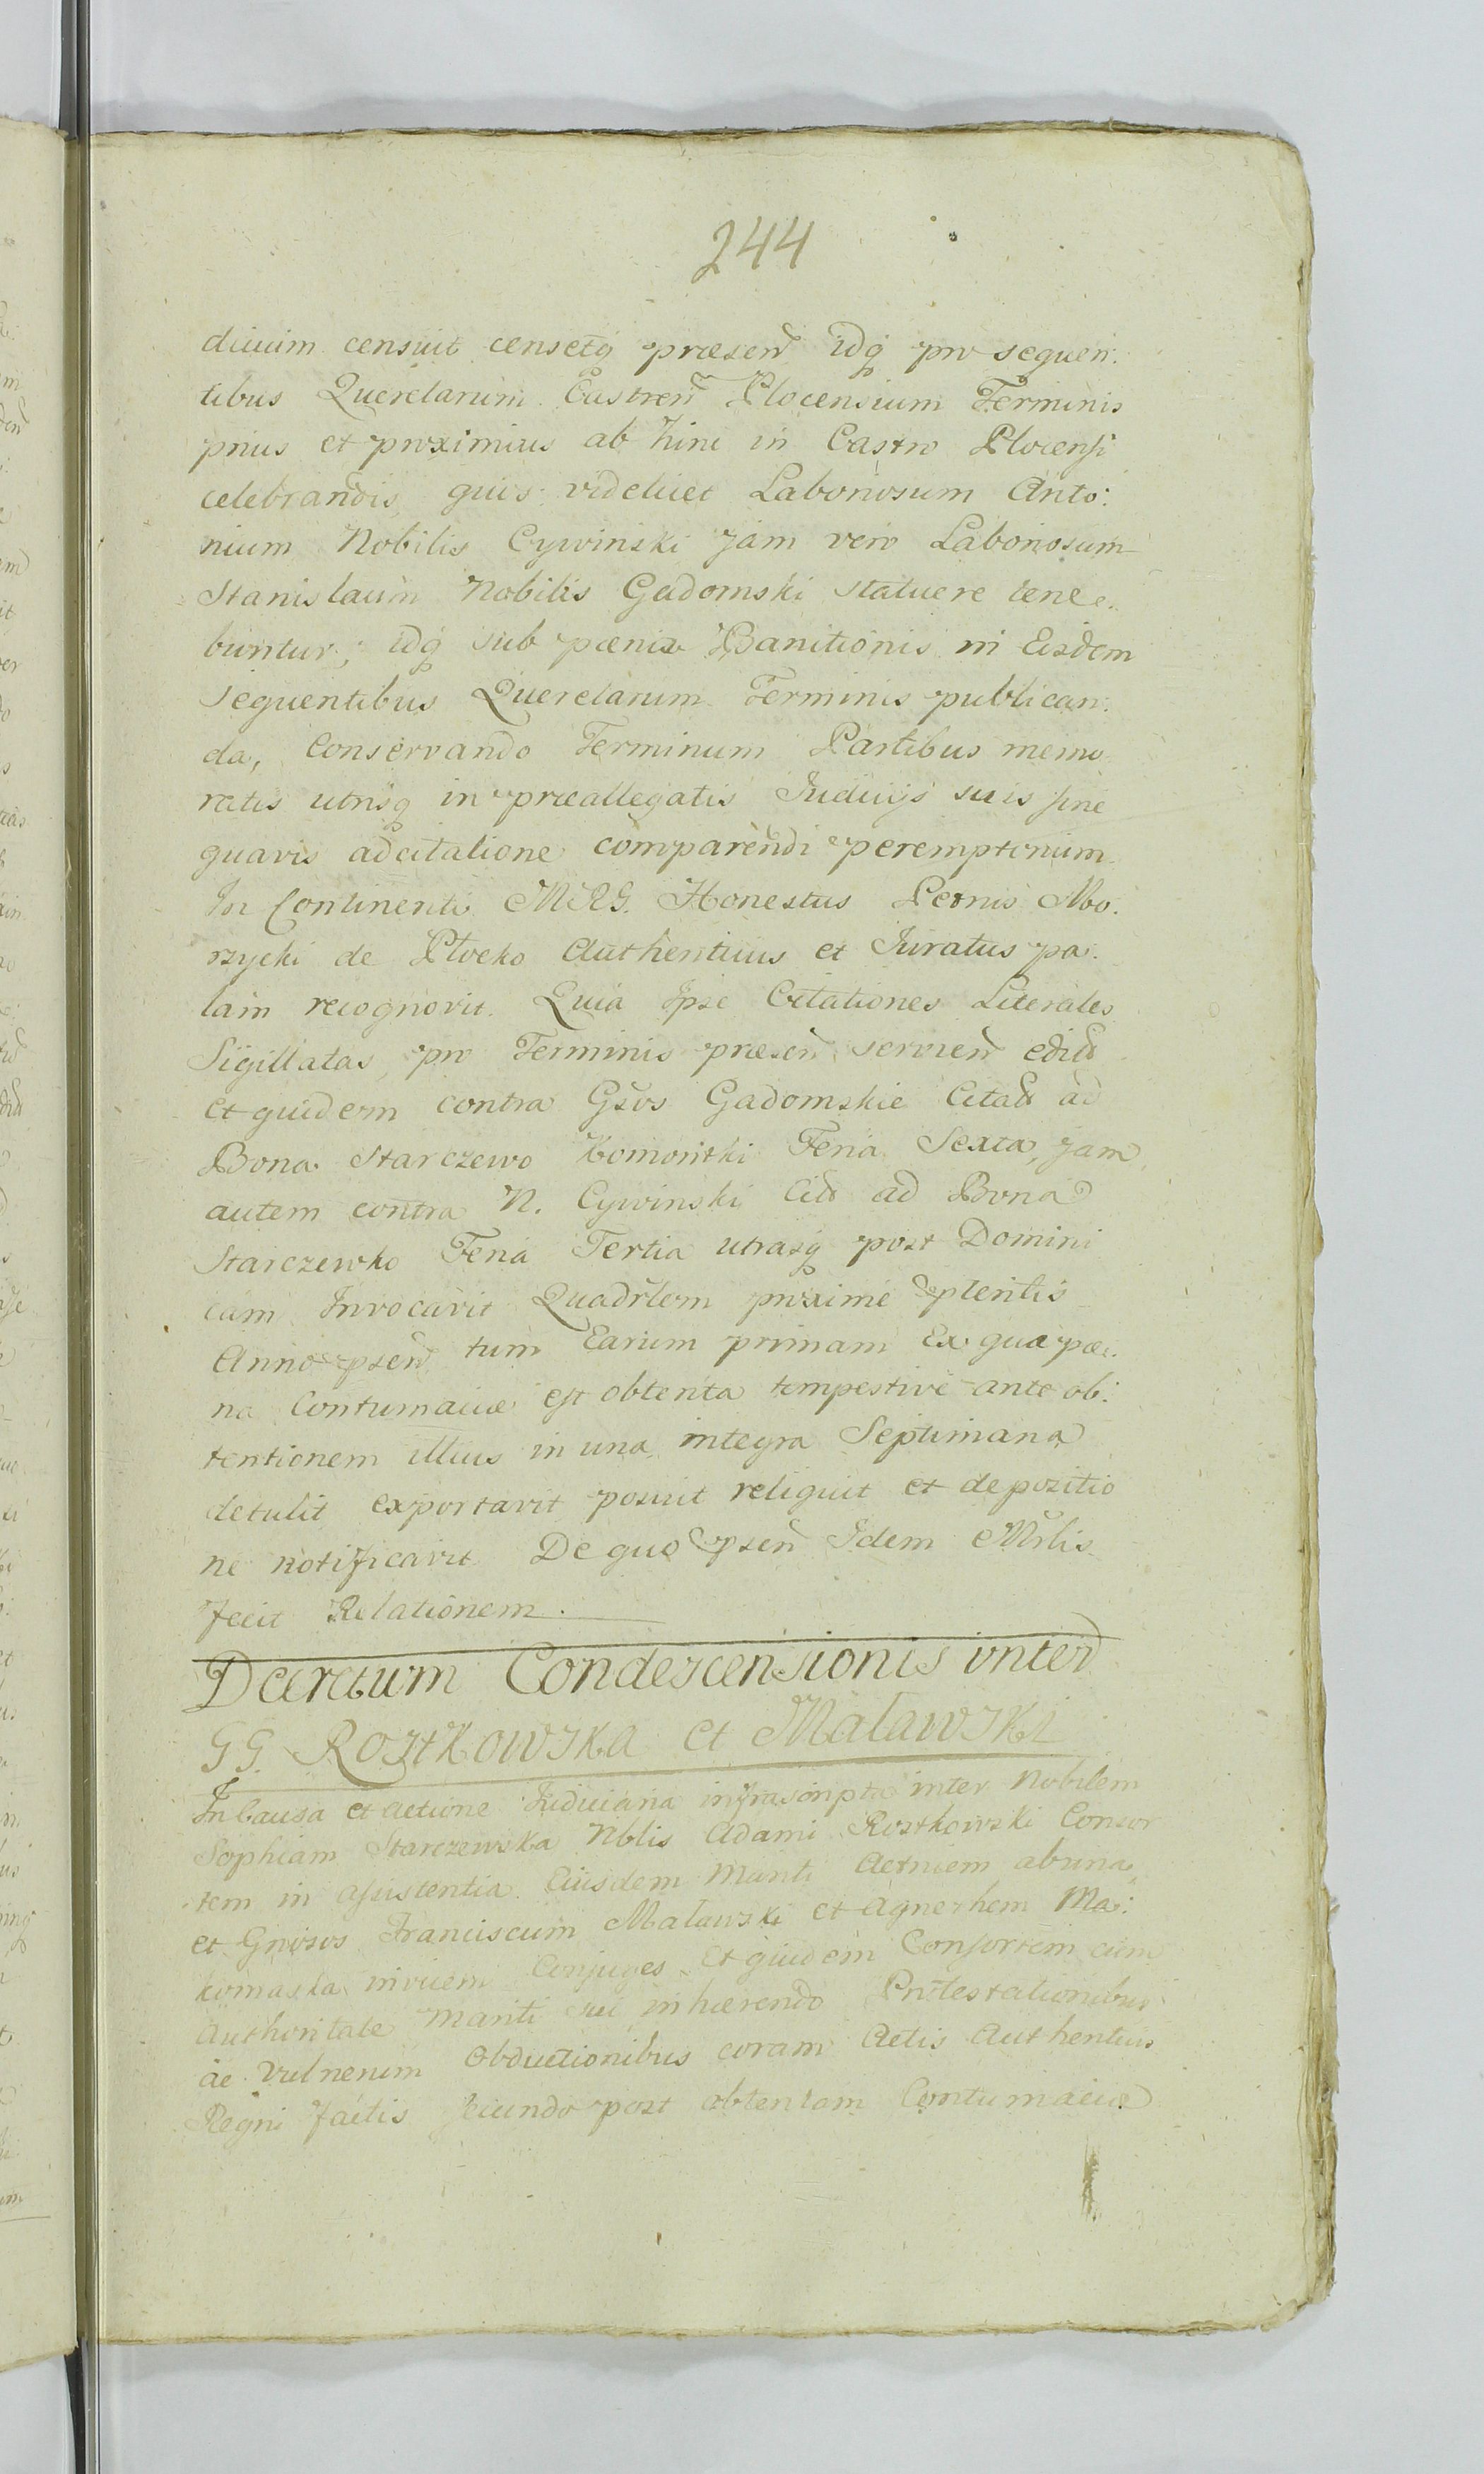 244
dicium censuit censetq præsen idq pro sequen:
tibus Querelarum Castren Plocensium Terminis
prius et proximius ab hinc in Castro Plocensi
celebrandis quis videlicet Laboriosum Anto:
nium Nobilis Cywinski jam vero Laboriosum
Stanislaum Nobilis Gadomski statuere tene
buntur, idq sub pæna Banitionis in Eisdem
sequentibus Querelarum Terminis publican:
da, Conservando Terminum Partibus memo
ratis utrisq in præallegatis Judicijs suis sine
quavis adcitatione comparendi peremptorium
In Continenti MRG. Honestus Petrus Mo:
rzycki de Plocko Authenticus et Juratus pa:
lam recognovit Quia Ipse Citationes Literales
Sigillatas pro Terminis præsen servien edid
et quidem contra Gsos Gadomskie Citad ad
Bona Starczewo Komontki Feria Sexta, jam
autem contra N. Cywinski Cit ad Bona
Starczewko Feria Tertia utrasq post Domini
cam Invocavit Quadrlem proxime pteritis
Anno psen tum Earum primam Ex qua pæ:
na Contumaciæ est obtenta tempestive ante ob:
tentionem illius in una integra Septimana
detulit exportavit posuit reliquit et depositio
ne notificavit De quo psen Idem Mrlis
fecit Relationem.
Decretum Condescensionis inter
GG. Rostkowska et Malawski
In Causa et Actione Judiciaria infrascripta inter Nobilem
Sophiam Starczewska Nblis Adami Rostkowski Consor
tem in assistentia Eiusdem Mariti Actricem ab una
et Gnrosos Franciscum Malawski et Agnethem Ma:
komaska invicem Conjuges Et quidem Consortem cum
Authoritate Mariti sui inhærendo Protestationibus
ac Vulnerum Obductionibus coram Actis Authenticis
Regni factis secundo post obtentam Contumaciæ